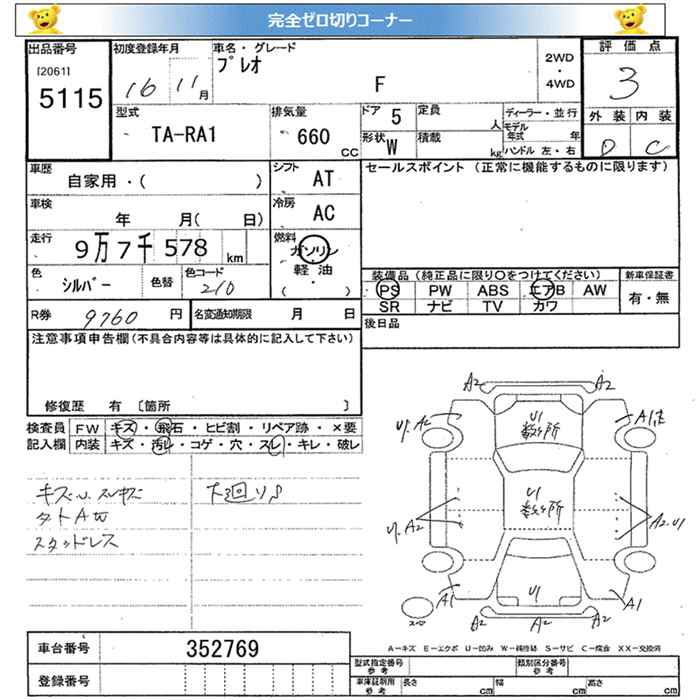 完全ゼロ切りコーナー
出品番号
[2061]
5115
初度登録年月
16 11月
車名・グレード
プレオ
F
2WD
・
4WD
評価点
3
外装 内装
D C
型式
TA-RA1
排気量
660
CC
ドア 5
定員 人
形状 W
積載 kg
ディーラー・並行
モデル年式 年
ハンドル 左・右
車歴
自家用・( )
シフト
AT
セールスポイント (正常に機能するものに限ります)
車検
年 月( 日)
冷房
AC
走行
9万7千578 km
燃料
ガソリン
軽油
( ・ )
色
シルバー
色替
色コード
210
装備品(純正品に限り○をつけてください)
PS PW ABS エアB AW
SR ナビ TV カワ
新車保証書
有・無
R券 9760 円
名変通知期限 月 日
後日品
注意事項申告欄(不具合内容等は具体的に記入して下さい)
修復歴 有 〔箇所 〕
検査員記入欄
FW キズ・飛石・ヒビ割・リペア跡・×要
内装 キズ・汚レ・コゲ・穴・スレ・キレ・破レ
キズU.スレキズ
タトAW
スタッドレス
下廻りS
A2 A2
U.A2
U1
数ヶ所
U1
数ヶ所
U.A2
A2.U1
A1
U1
A1
A2 A2 A2
A-キズ E-エクボ U-凹み W-補修跡 S-サビ C-腐食 XX-交換済
車台番号
352769
登録番号
型式指定番号
参考
類別区分番号
参考
車庫証明用
参考
長さ cm
幅 cm
高さ cm